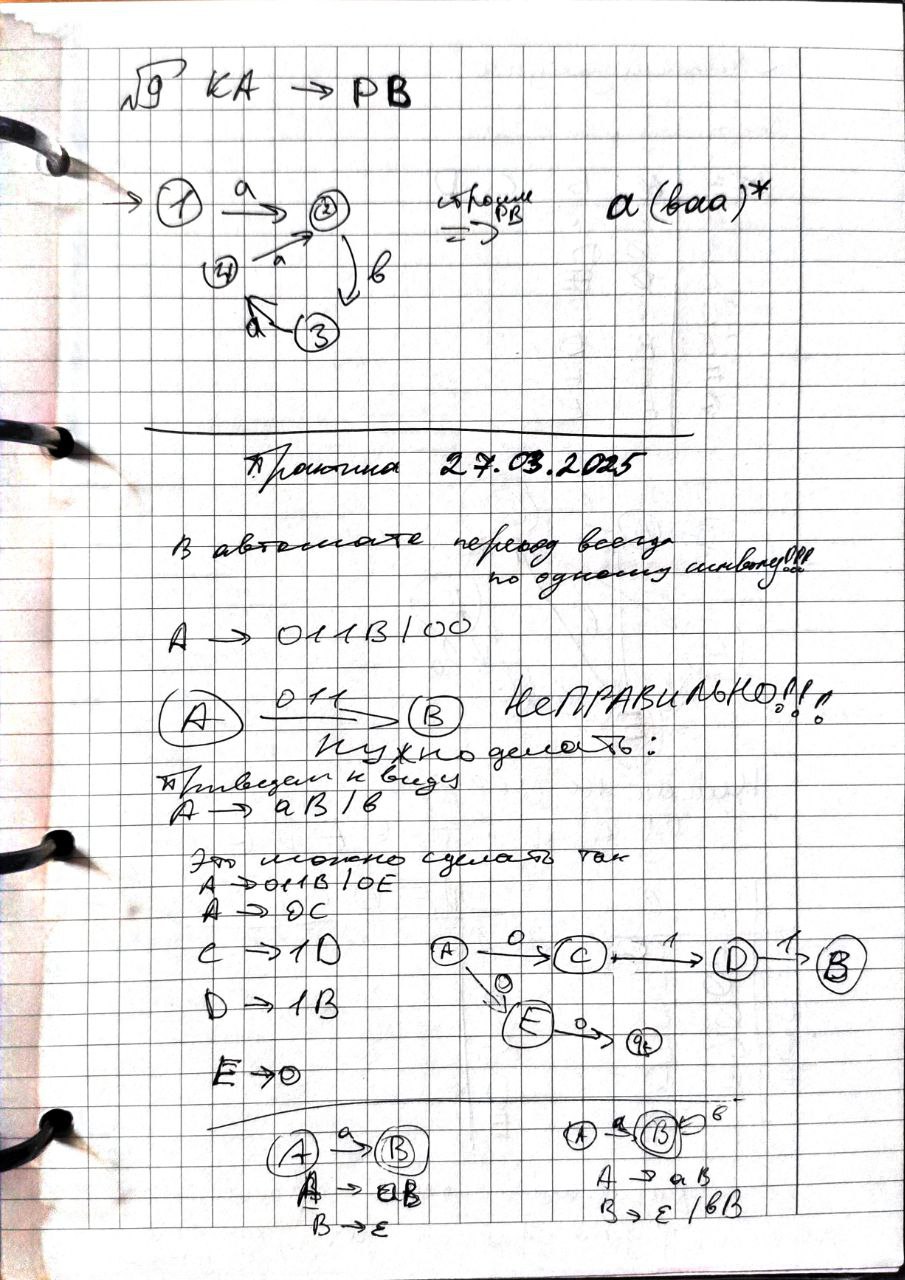 √9 КА → РВ
1 a 2 строим РВ ⇒ a(baa)*
4 a в
a 3
Практика 27.03.2025
В автомате переход всегда
по одному символу!!!
A → 011B | 00
A 011 B НЕПРАВИЛЬНО!!!
Нужно делать:
Приведем к виду
A → aB | в
Это можно сделать так
A → 011B | 0E
A → 0C
C → 1D
A 0 C 1 D 1 B
D → 1B
0 E 0 qf
E → 0
A a B
A a B в
A → aB
A → aB
B → ε
B → ε | вB